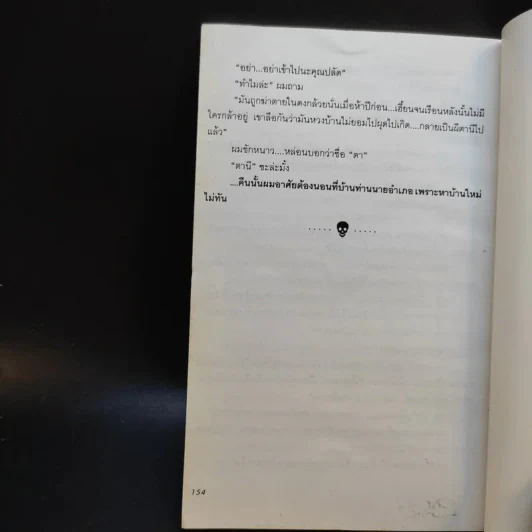 "อย่า...อย่าเข้าไปนะคุณปลัด"
"ทำไมล่ะ" ผมถาม
"มันถูกฆ่าตายในดงกล้วยนั่นเมื่อห้าปีก่อน...เฮี้ยนจนเรือนหลังนั้นไม่มี
ใครกล้าอยู่ เขาลือกันว่ามันหวงบ้านไม่ยอมไปผุดไปเกิด....กลายเป็นผีตานีไป
แล้ว"
ผมชักหนาว....หล่อนบอกว่าชื่อ "ตา"
"ตานี" ซะล่ะมั้ง
....คืนนั้นผมอาศัยต้องนอนที่บ้านท่านนายอำเภอ เพราะหาบ้านใหม่
ไม่ทัน
154